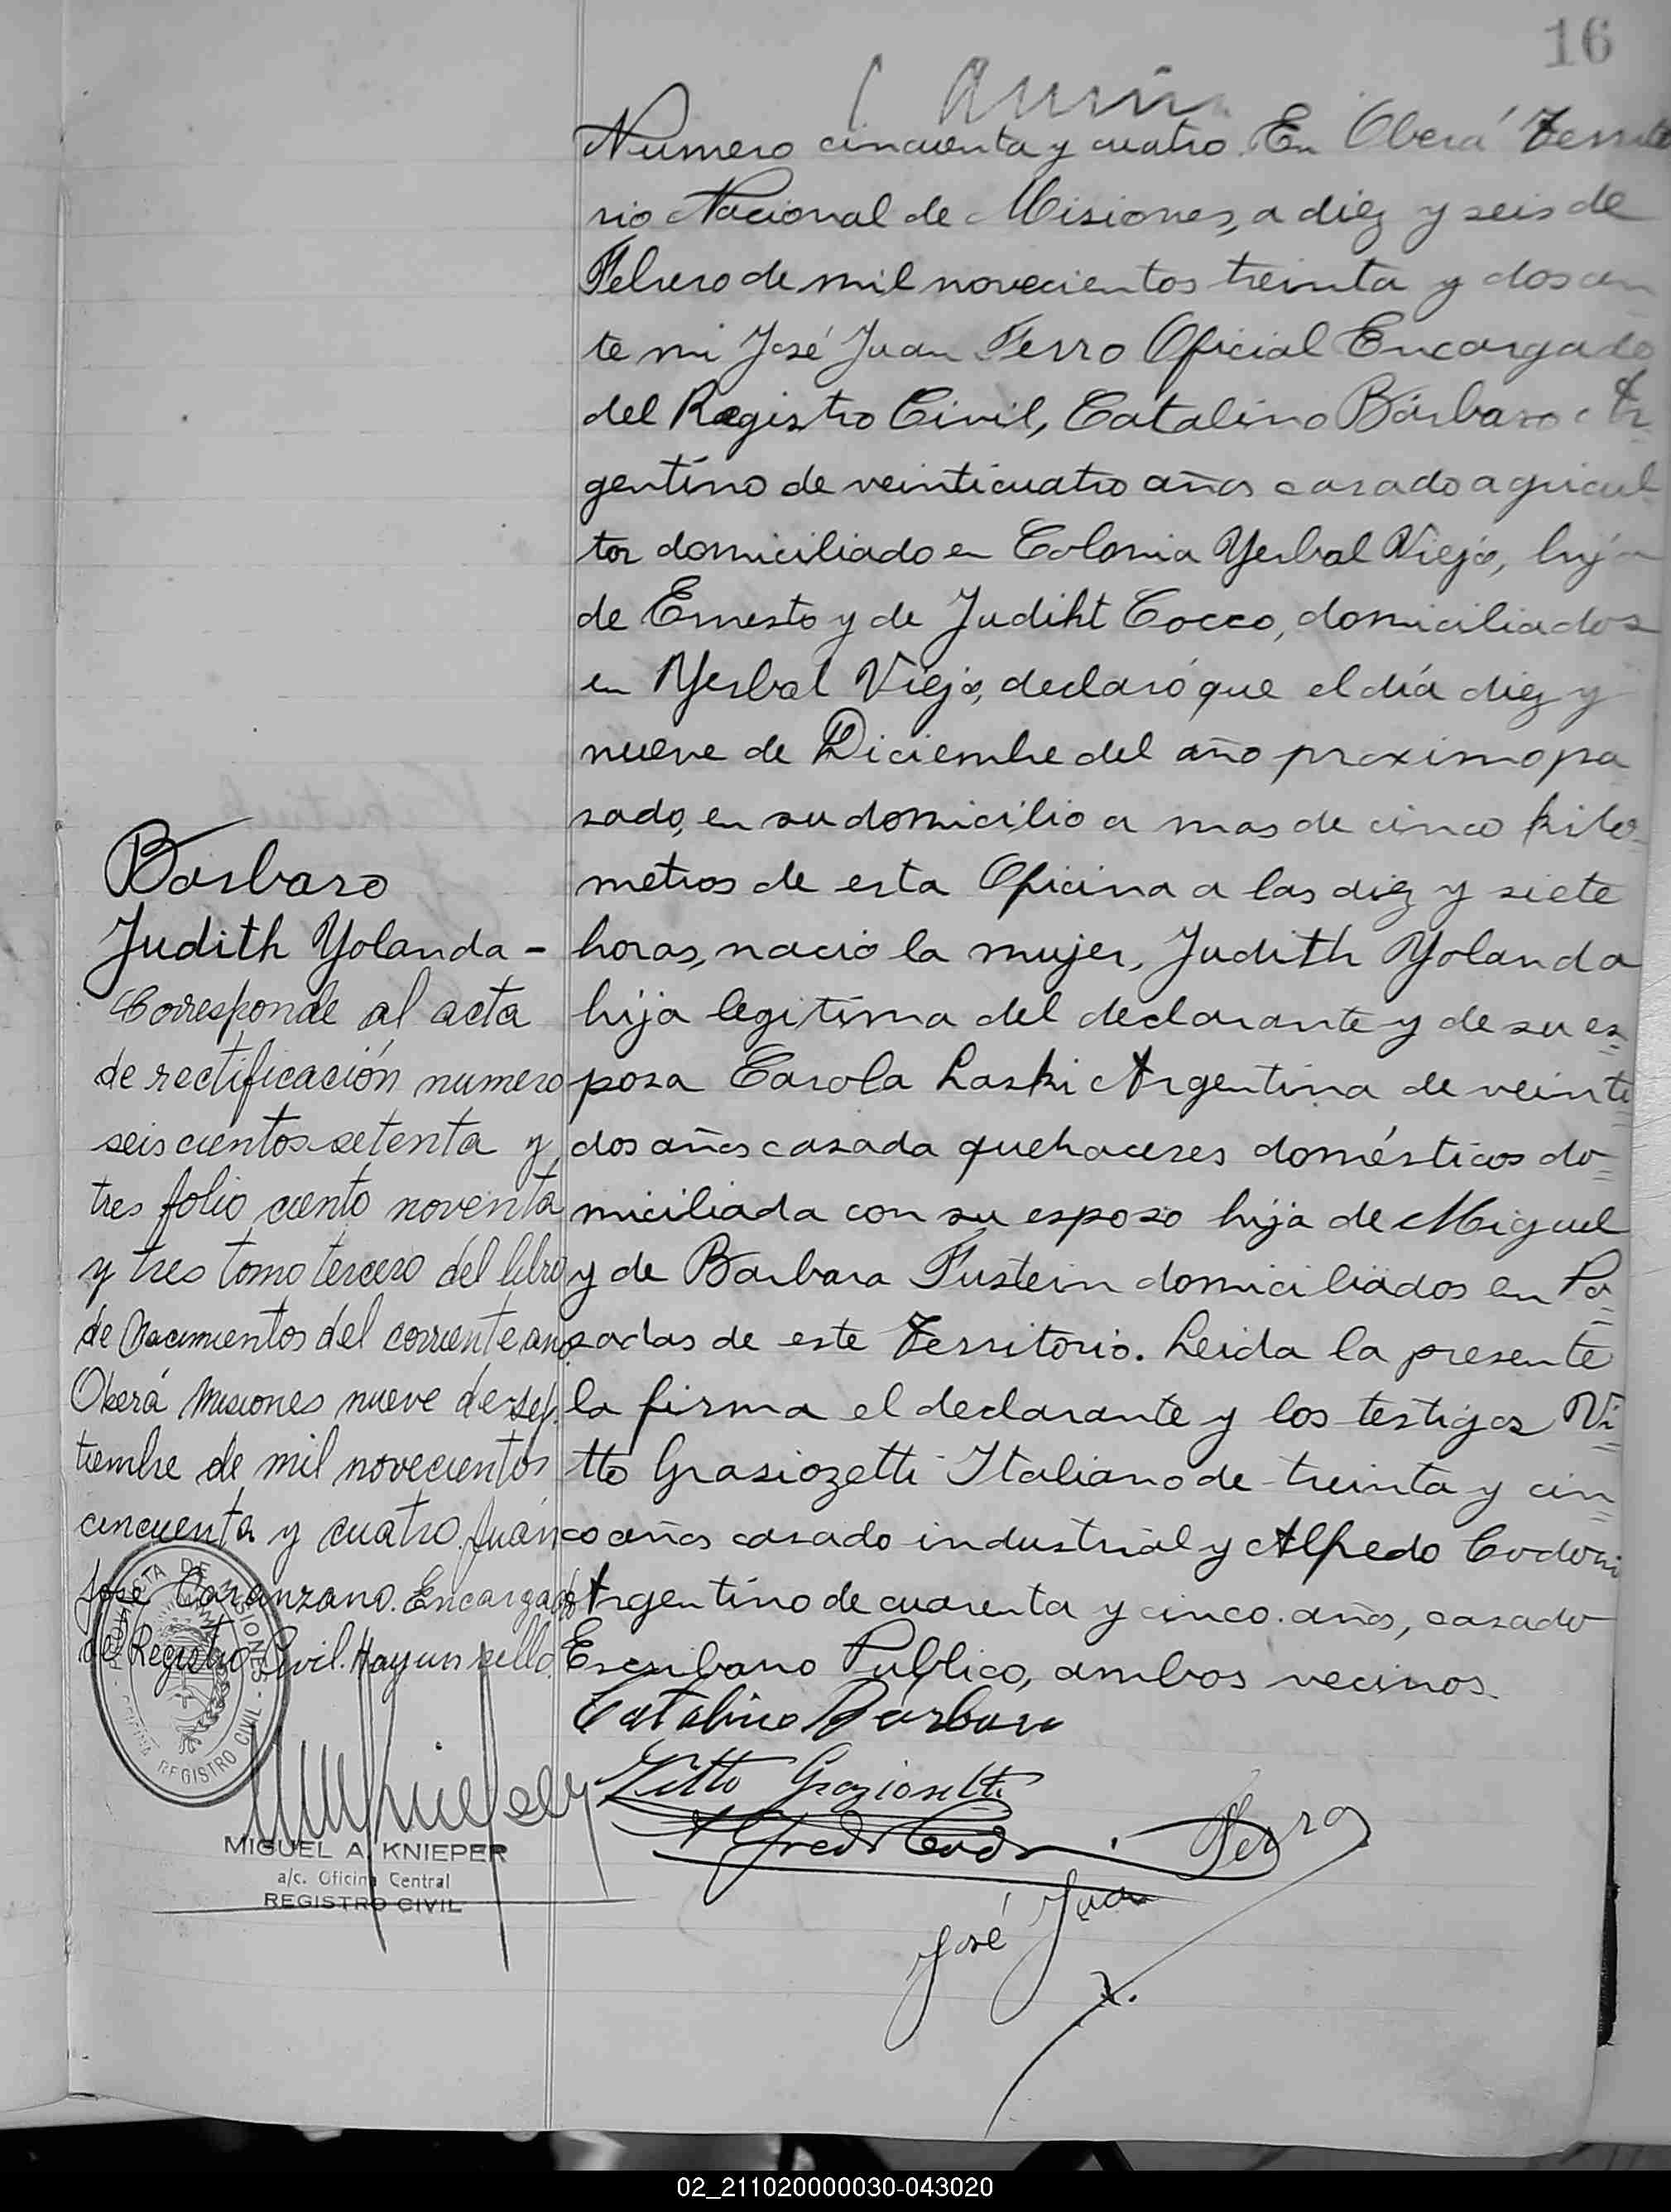 16
Numero cincuenta y cuatro. En Oberá Territo
rio Nacional de Misiones, a diez y seis de
Febrero de mil novecientos treinta y dos an
te mi José Juan Ferro Oficial Encargado
del Registro Civil, Catalino Bárbaro Ar
gentino de veinticuatro años casado agricul
tor domiciliado en Colonia Yerbal Viejo, hijo
de Ernesto y de Judiht Cocco, domiciliados
en Yerbal Viejo, declaró que el día diez y
nueve de Diciembre del año proximo pa
sado, en su domicilio a mas de cinco kilo-
metros de esta Oficina a las diez y siete
horas, nació la mujer, Judith Yolanda
hija legitima del declarante y de su es=
posa Carola Laski Argentina de veinti=
dos años casada quehaceres domésticos do=
miciliada con su esposo hija de Miguel
y de Barbara Fustein domiciliados en Po=
sadas de este Territorio. Leida la presente
la firma el declarante y los testigos Vi=
tto Grasiozetti Italiano de treinta y cin=
co años casado industrial y Alfredo Codoni
Argentino de cuarenta y cinco años, casado
Escribano Publico, ambos vecinos.
Catalino Bárbaro
Vitto Graziosetti
Alfredo Codoni
José Juan Ferro
Bárbaro
Judith Yolanda -
Corresponde al acta
de rectificación numero
seiscientos setenta y
tres folio ciento noventa
y tres tomo tercero del libro
de Nacimientos del corriente ano
Oberá Misiones nueve de sep
tiembre de mil novecientos
cincuenta y cuatro. Juan
José Caranzano. Encargado
de Registro Civil. Hay un sello.
PROVINCIA DE MISIONES
OFICINA REGISTRO CIVIL
MIGUEL A. KNIEPER
a/c. Oficina Central
REGISTRO CIVIL
02_211020000030-043020